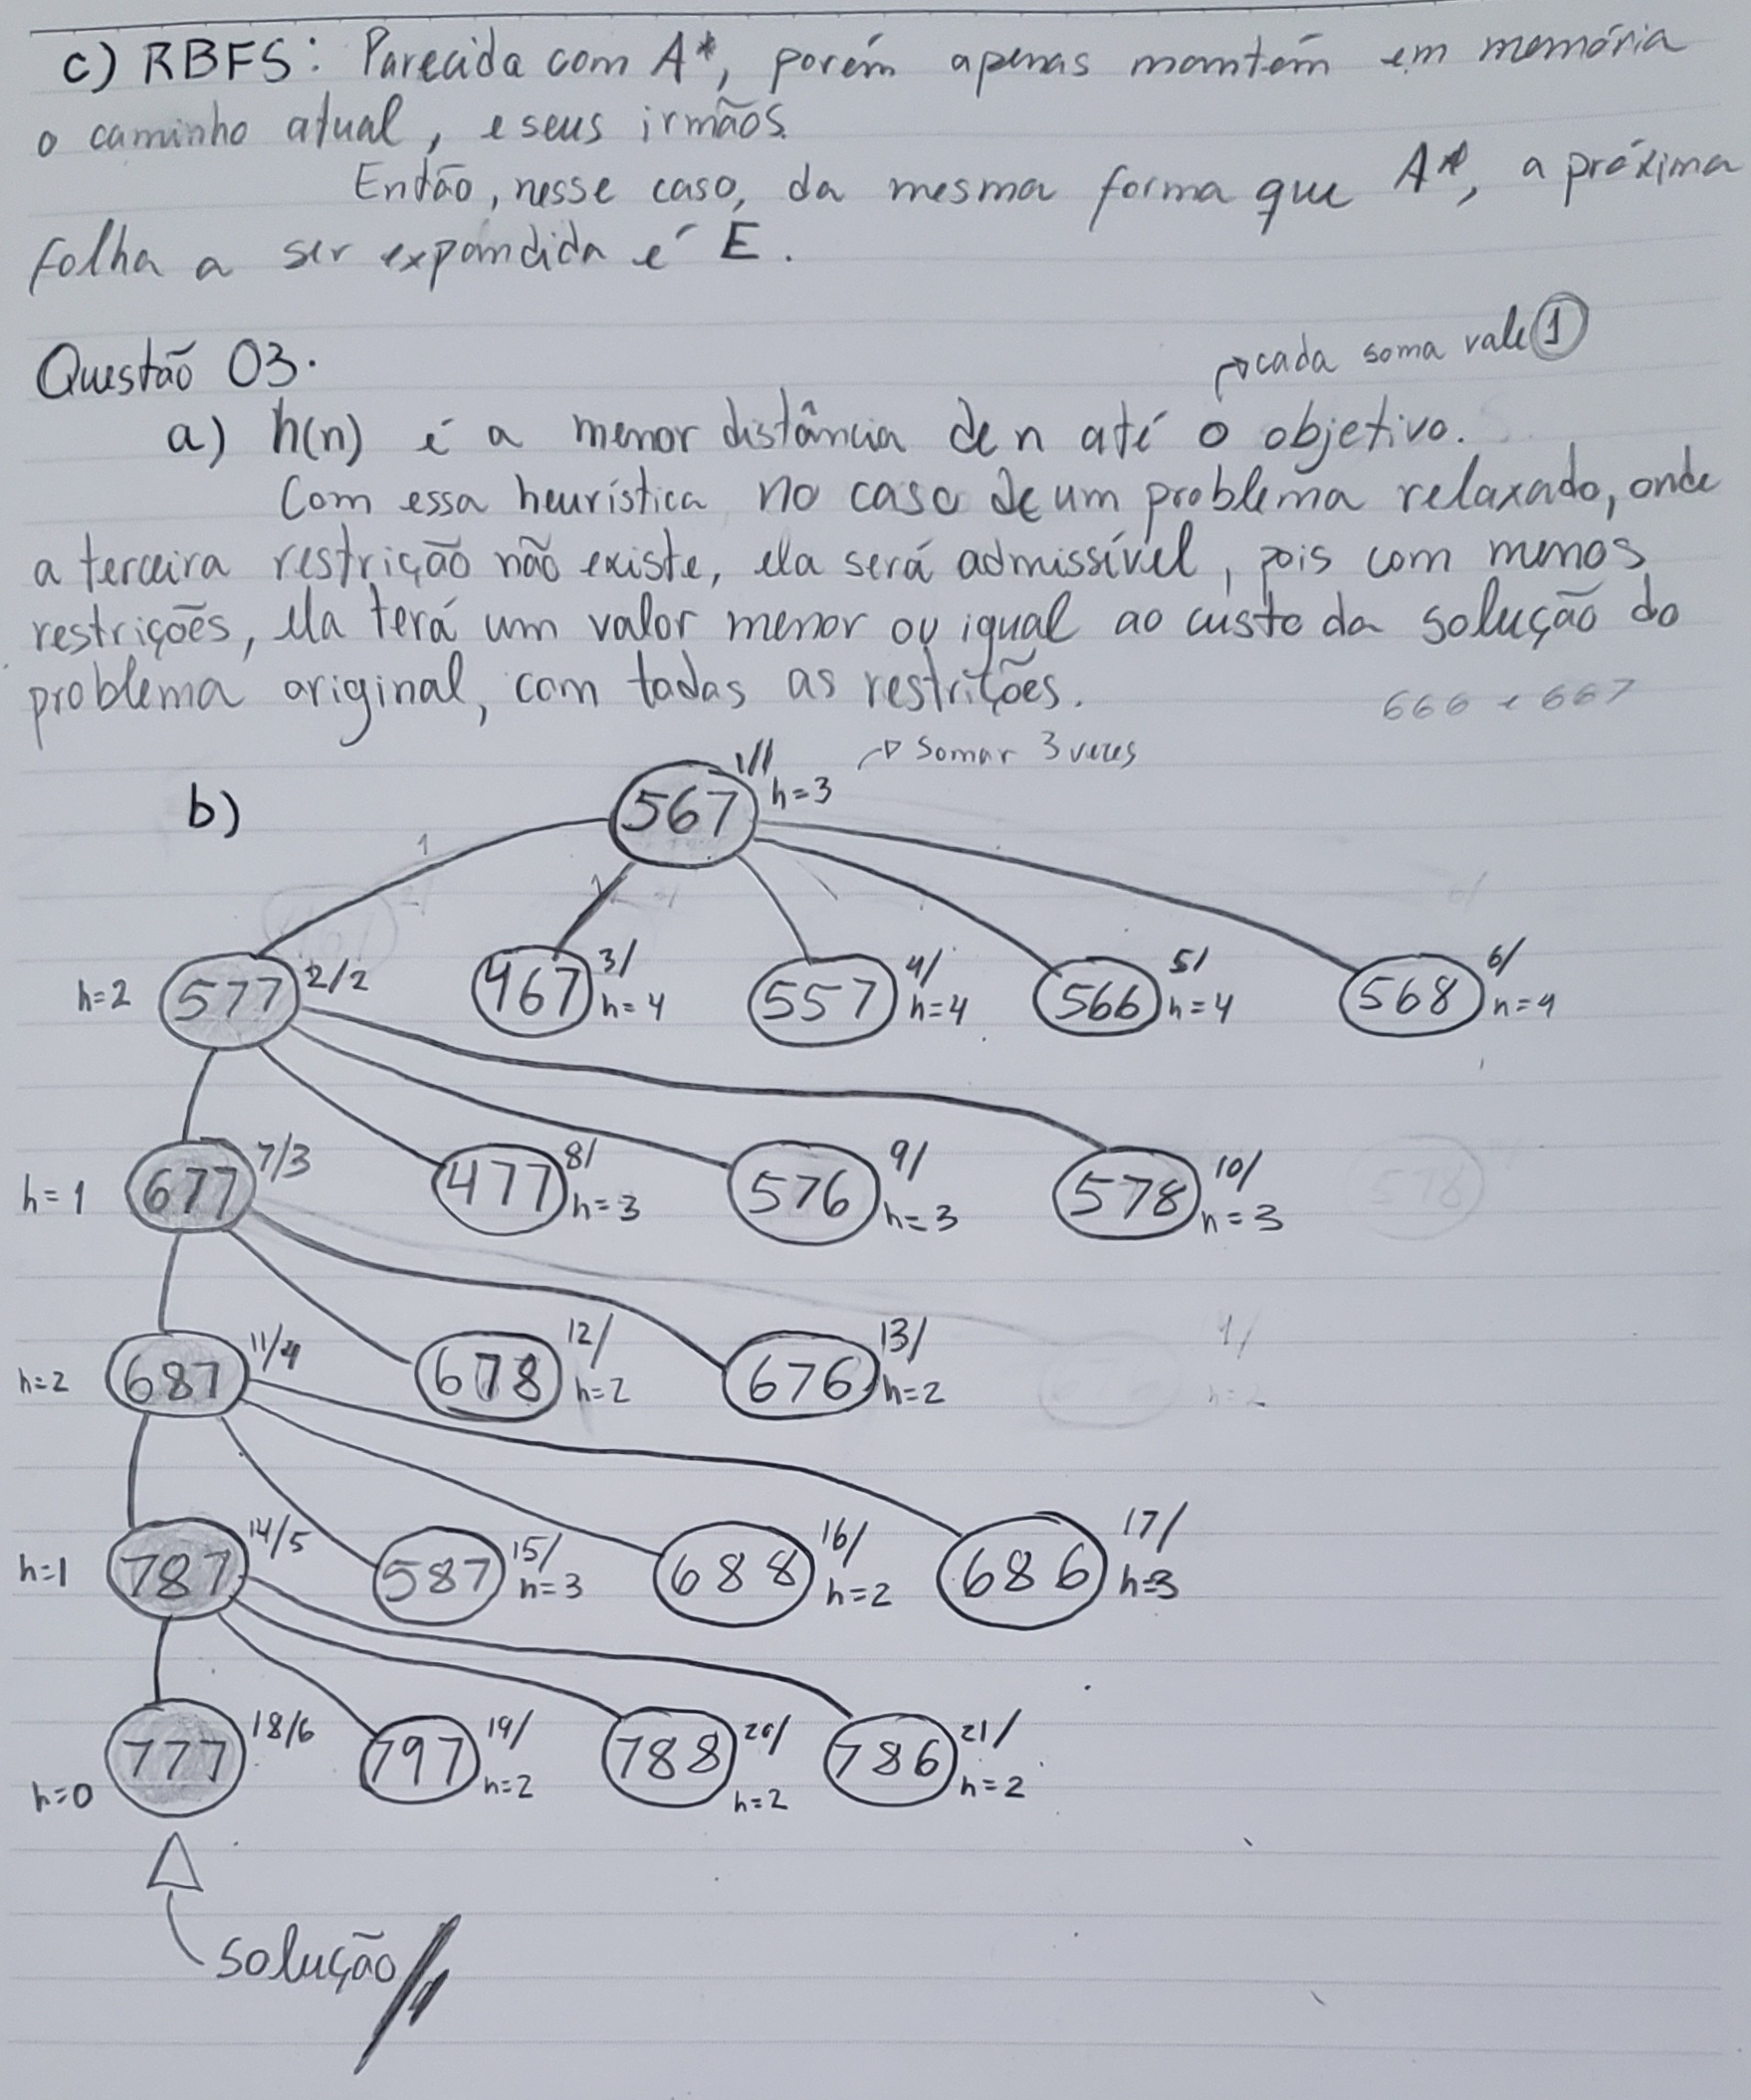 c) RBFS: Parecida com A*, porém apenas mantém em memória
o caminho atual, e seus irmãos.
Então, nesse caso, da mesma forma que A*, a próxima
folha a ser expandida é E.
Questão 03.
cada soma vale 1
a) h(n) é a menor distância de n até o objetivo.
Com essa heurística no caso de um problema relaxado, onde
a terceira restrição não existe, ela será admissível, pois com menos
restrições, ela terá um valor menor ou igual ao custo da solução do
problema original, com todas as restrições.
666 e 667
b)
567 1/1 h=3 Somar 3 vezes
1
h=2 577 2/2 467 3/ h=4 557 4/ h=4 566 5/ h=4 568 6/ h=4
h=1 677 7/3 477 8/ h=3 576 9/ h=3 578 10/ h=3 578
h=2 687 11/4 678 12/ h=2 676 13/ h=2 676 1/ h=2
h=1 787 14/5 587 15/ h=3 688 16/ h=2 686 17/ h=3
h=0 777 18/6 797 19/ h=2 788 20/ h=2 786 21/ h=2
solução